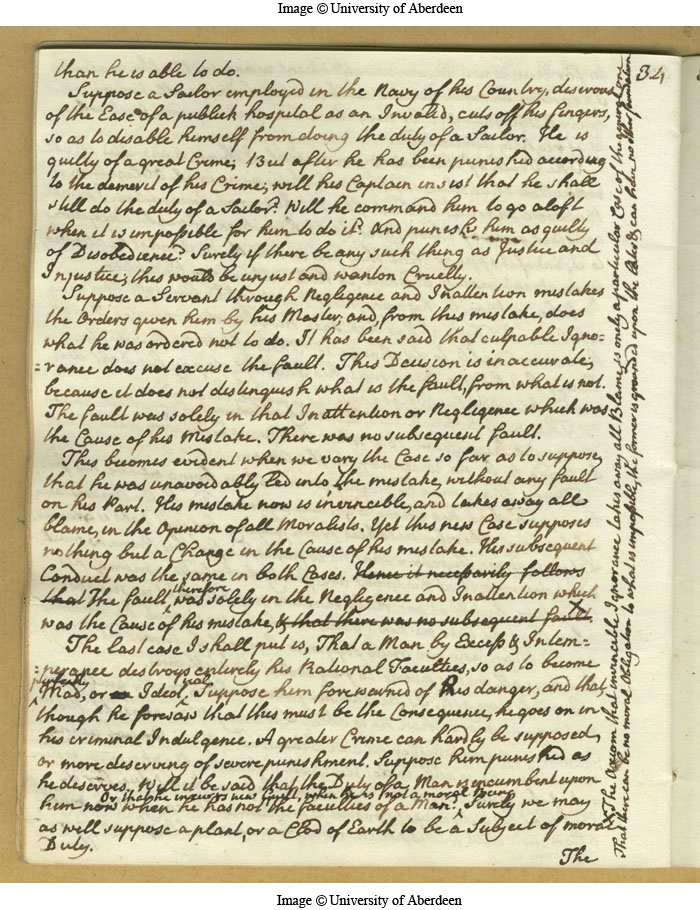 Image © University of Aberdeen
34
than he is able to do.
Suppose a Sailor employed in the Navy of his Country, desirous
of the Ease of a publick hospital as an Invalid, cuts off his fingers,
so as to disable himself from doing the duty of a Sailor. He is
guilty of a great Crime; But after he has been punished according
to the demerit of his Crime, will his Captain insist that he shall
still do the duty of a Sailor? Will he command him to go aloft
when it is impossible for him to do it? And punish him as guilty
of Disobedience? Surely if there be any such thing as Justice and
Injustice, this would be unjust and wanton Cruelty.
Suppose a Servant through Negligence and Inattention mistakes
the Orders given him by his Master, and, from this mistake, does
what he was ordered not to do. It has been said that culpable Igno-
=rance does not excuse the fault. This Decision is inaccurate,
because it does not distinguish what is the fault, from what is not.
The fault was solely in that Inattention or Negligence which was
the Cause of his Mistake. There was no subsequent fault.
This becomes evident when we vary the Case so far as to suppose,
that he was unavoidably led into the mistake, without any fault
on his Part. His mistake now is invincible, and takes away all
blame, in the Opinion of all Moralists. Yet this new Case supposes
nothing but a Change in the Cause of his mistake. His subsequent
Conduct was the same in both Cases. Hence it necessarily follows
therefore
that The fault, was solely in the Negligence and Inattention which
was the Cause of his mistake, & that there was no subsequent fault.
The last case I shall put is, That a Man by Excess & Intem-
=perance destroys entirely his Rational Faculties, so as to become
perfectly
Mad, or an Ideot, Suppose him forewarned of this danger, and that
though he foresaw that this must be the Consequence, he goes on in
his criminal Indulgence. A greater Crime can hardly be supposed,
or more deserving of severe punishment. Suppose him punished as
he deserves. Will it be said that the Duty of a Man is incumbent upon
Or that he incurrs new Guilt when he is not a moral Being
him now when he has not the faculties of a Man? Surely we may
as well suppose a plant, or a Clod of Earth to be a Subject of moral
Duty.
The
X The Axiom that invincible Ignorance takes away all Blame, is only a particular Case of the general one
That there can be no moral Obligation to what is impossible, the former is grounded upon the latter & can have no other foundation
Image © University of Aberdeen